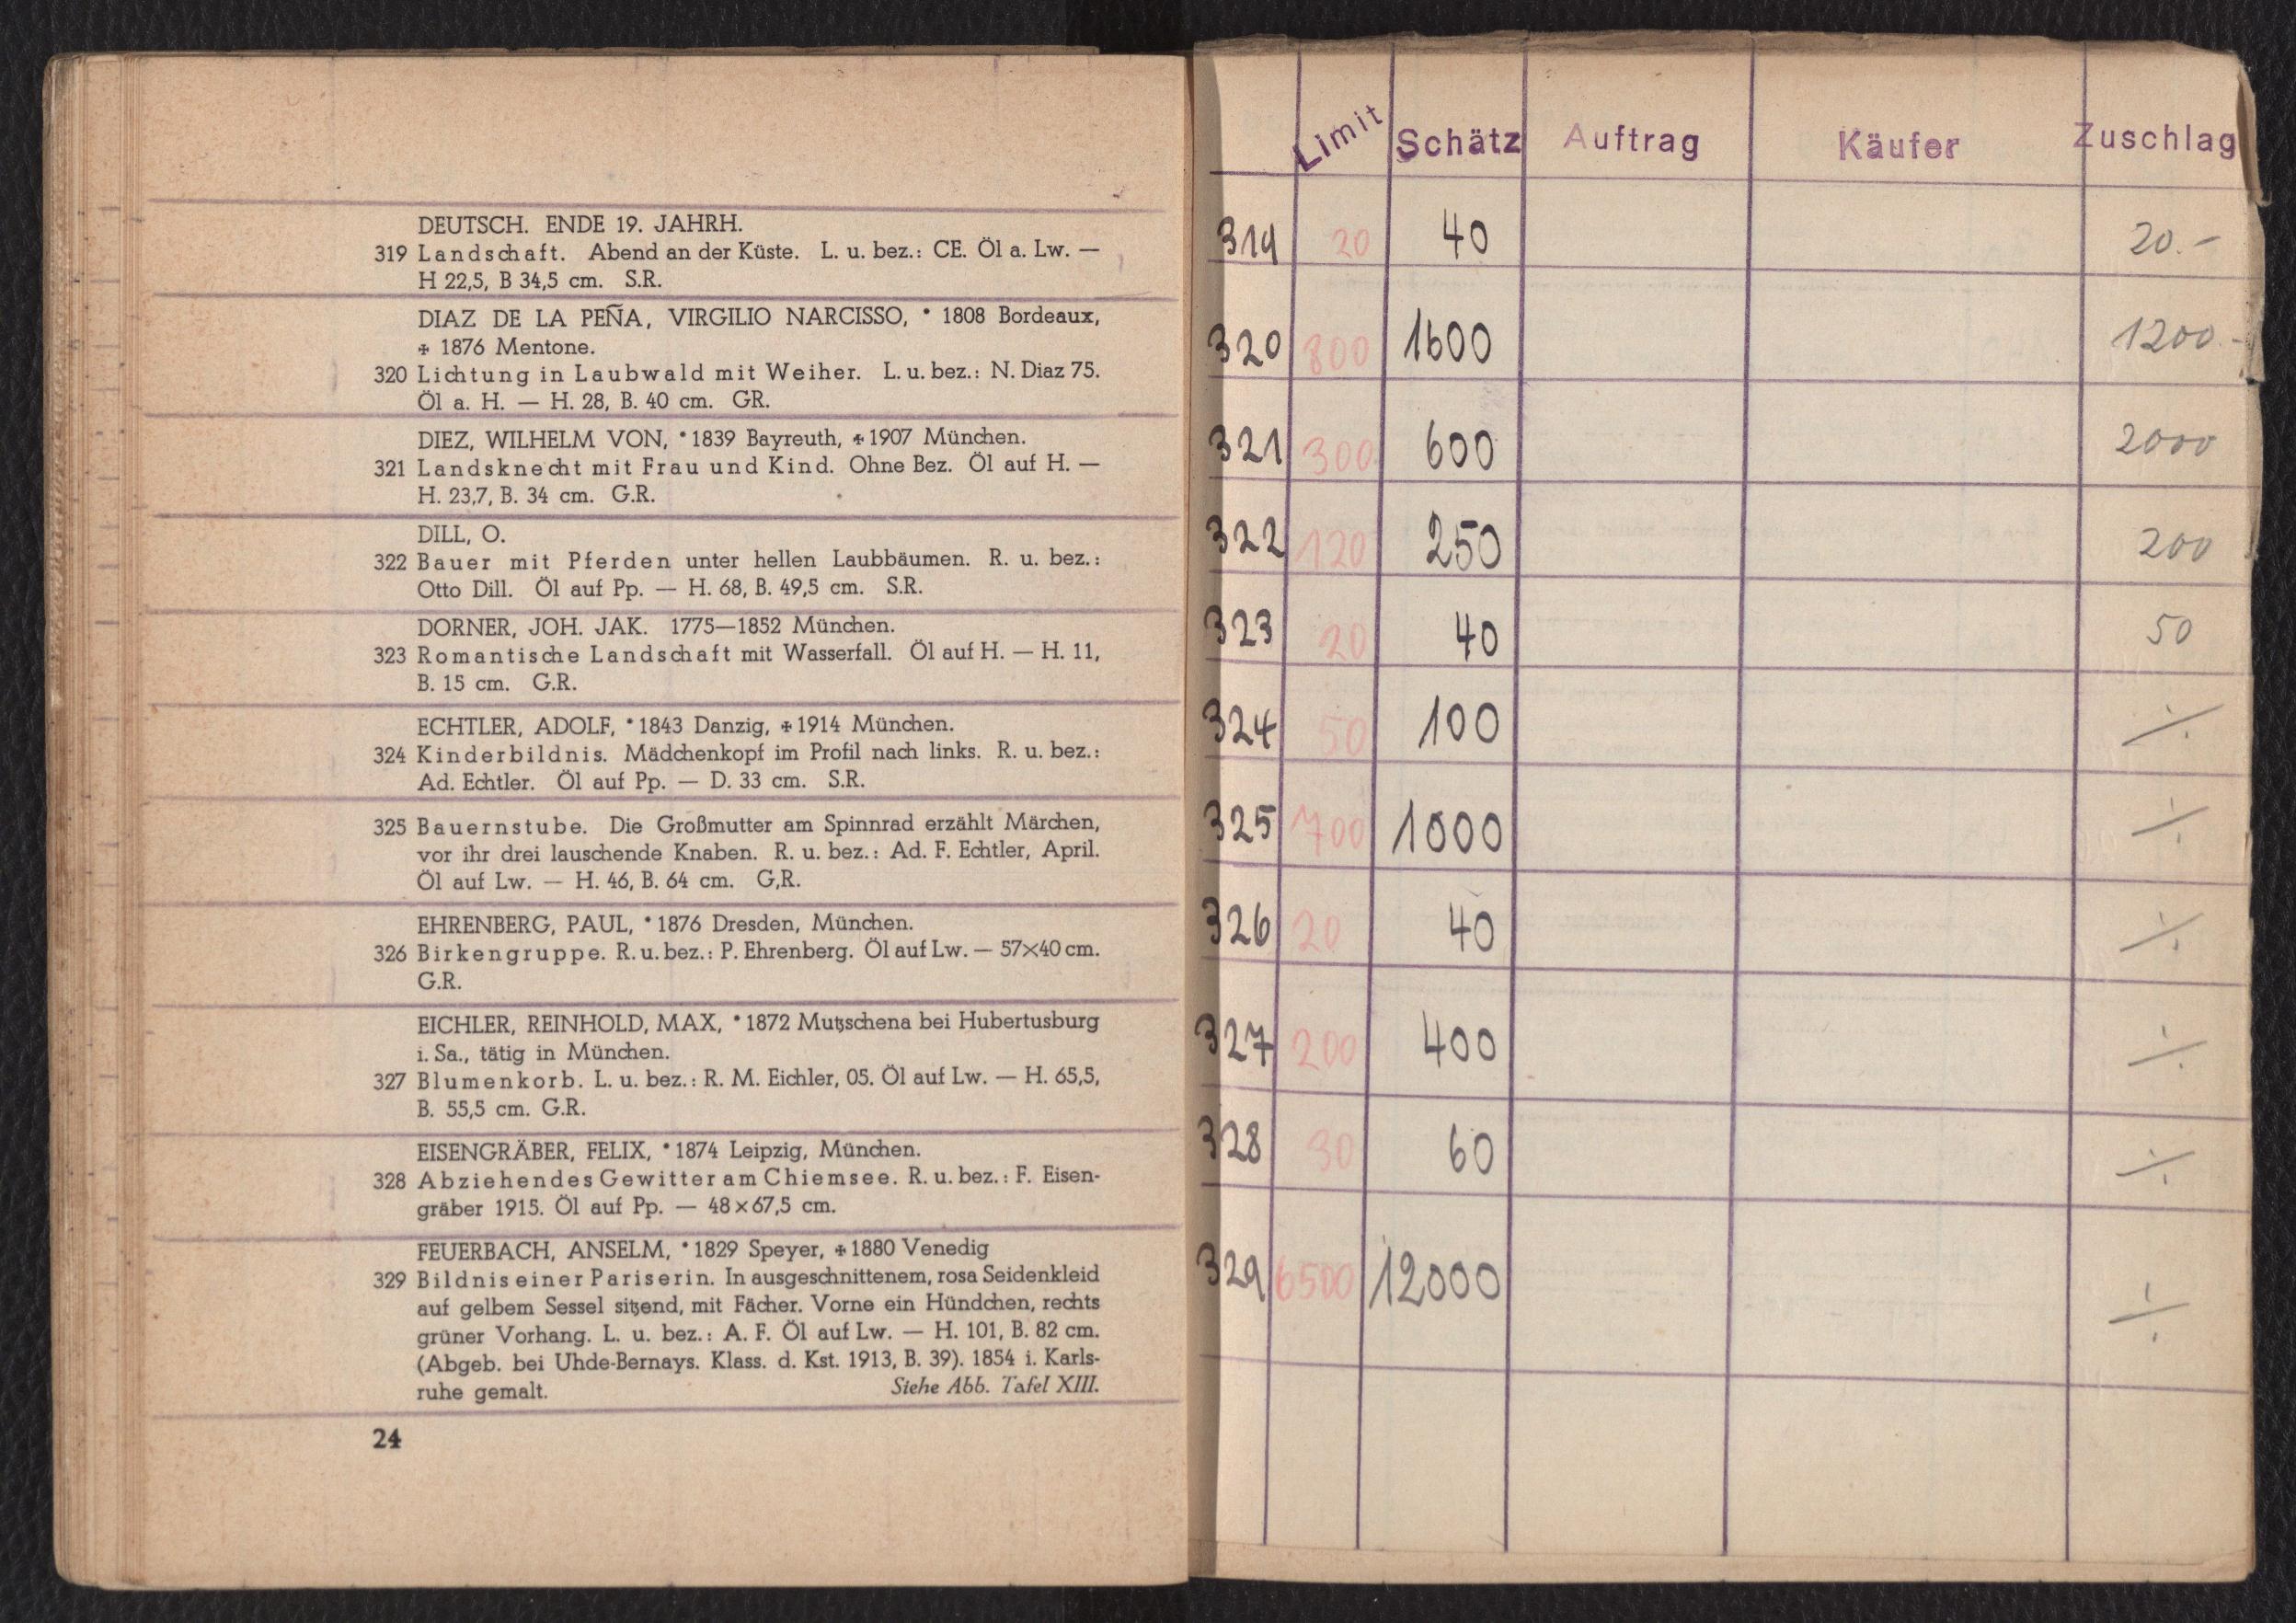 DEUTSCH. ENDE 19. JAHRH.
319 Landschaft. Abend an der Küste. L. u. bez.: CE. Öl a. Lw. —
H 22,5, B 34,5 cm. S.R.
DIAZ DE LA PEÑA, VIRGILIO NARCISSO, * 1808 Bordeaux,
✠ 1876 Mentone.
320 Lichtung in Laubwald mit Weiher. L. u. bez.: N. Diaz 75.
Öl a. H. — H. 28, B. 40 cm. GR.
DIEZ, WILHELM VON, * 1839 Bayreuth, ✠ 1907 München.
321 Landsknecht mit Frau und Kind. Ohne Bez. Öl auf H. —
H. 23,7, B. 34 cm. G.R.
DILL, O.
322 Bauer mit Pferden unter hellen Laubbäumen. R. u. bez.:
Otto Dill. Öl auf Pp. — H. 68, B. 49,5 cm. S.R.
DORNER, JOH. JAK. 1775—1852 München.
323 Romantische Landschaft mit Wasserfall. Öl auf H. — H. 11,
B. 15 cm. G.R.
ECHTLER, ADOLF, * 1843 Danzig, ✠ 1914 München.
324 Kinderbildnis. Mädchenkopf im Profil nach links. R. u. bez.:
Ad. Echtler. Öl auf Pp. — D. 33 cm. S.R.
325 Bauernstube. Die Großmutter am Spinnrad erzählt Märchen,
vor ihr drei lauschende Knaben. R. u. bez.: Ad. F. Echtler, April.
Öl auf Lw. — H. 46, B. 64 cm. G,R.
EHRENBERG, PAUL, * 1876 Dresden, München.
326 Birkengruppe. R. u. bez.: P. Ehrenberg. Öl auf Lw. — 57×40 cm.
G.R.
EICHLER, REINHOLD, MAX, * 1872 Mutzschena bei Hubertusburg
i. Sa., tätig in München.
327 Blumenkorb. L. u. bez.: R. M. Eichler, 05. Öl auf Lw. — H. 65,5,
B. 55,5 cm. G.R.
EISENGRÄBER, FELIX, * 1874 Leipzig, München.
328 Abziehendes Gewitter am Chiemsee. R. u. bez.: F. Eisen-
gräber 1915. Öl auf Pp. — 48×67,5 cm.
FEUERBACH, ANSELM, * 1829 Speyer, ✠ 1880 Venedig
329 Bildnis einer Pariserin. In ausgeschnittenem, rosa Seidenkleid
auf gelbem Sessel sitzend, mit Fächer. Vorne ein Hündchen, rechts
grüner Vorhang. L. u. bez.: A. F. Öl auf Lw. — H. 101, B. 82 cm.
(Abgeb. bei Uhde-Bernays. Klass. d. Kst. 1913, B. 39). 1854 i. Karls-
ruhe gemalt. Siehe Abb. Tafel XIII.
24
Limit Schätz Auftrag Käufer Zuschlag
319 20 40 20.-
320 800 1600 1200.-
321 300 600 2000
322 120 250 200
323 20 40 50
324 50 100 ÷
325 700 1000 ÷
326 20 40 ÷
327 200 400 ÷
328 30 60 ÷
329 6500 12000 ÷